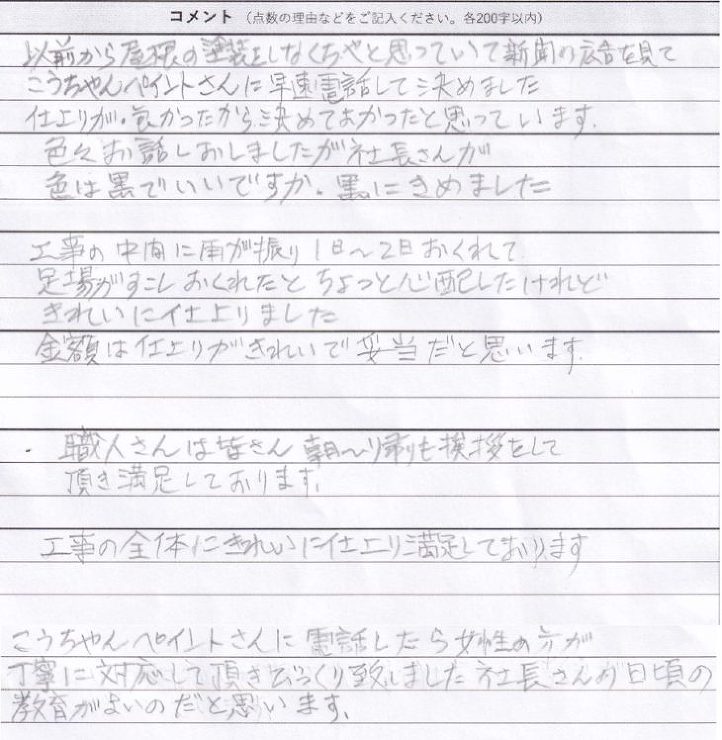 コメント （点数の理由などをご記入ください。各200字以内）
以前から屋根の塗装をしなくちゃと思っていて新聞の広告を見て
こうちゃんペイントさんに早速電話して決めました
仕上りが良かったから決めてよかったと思っています。
色々お話しおしましたが社長さんが
色は黒でいいですか。黒にきめました
工事の中間に雨が振り1日〜2日おくれて
足場がすこしおくれたとちょっと心配したけれど
きれいに仕上りました
金額は仕上りがきれいで妥当だと思います。
・職人さんは皆さん朝〜り帰りも挨拶をして
頂き満足しております。
工事の全体にきれいに仕上り満足しております
こうちゃんペイントさんに電話したら女性の方が
丁寧に対応して頂きびっくり致しました社長さんが日頃の
教育がよいのだと思います。